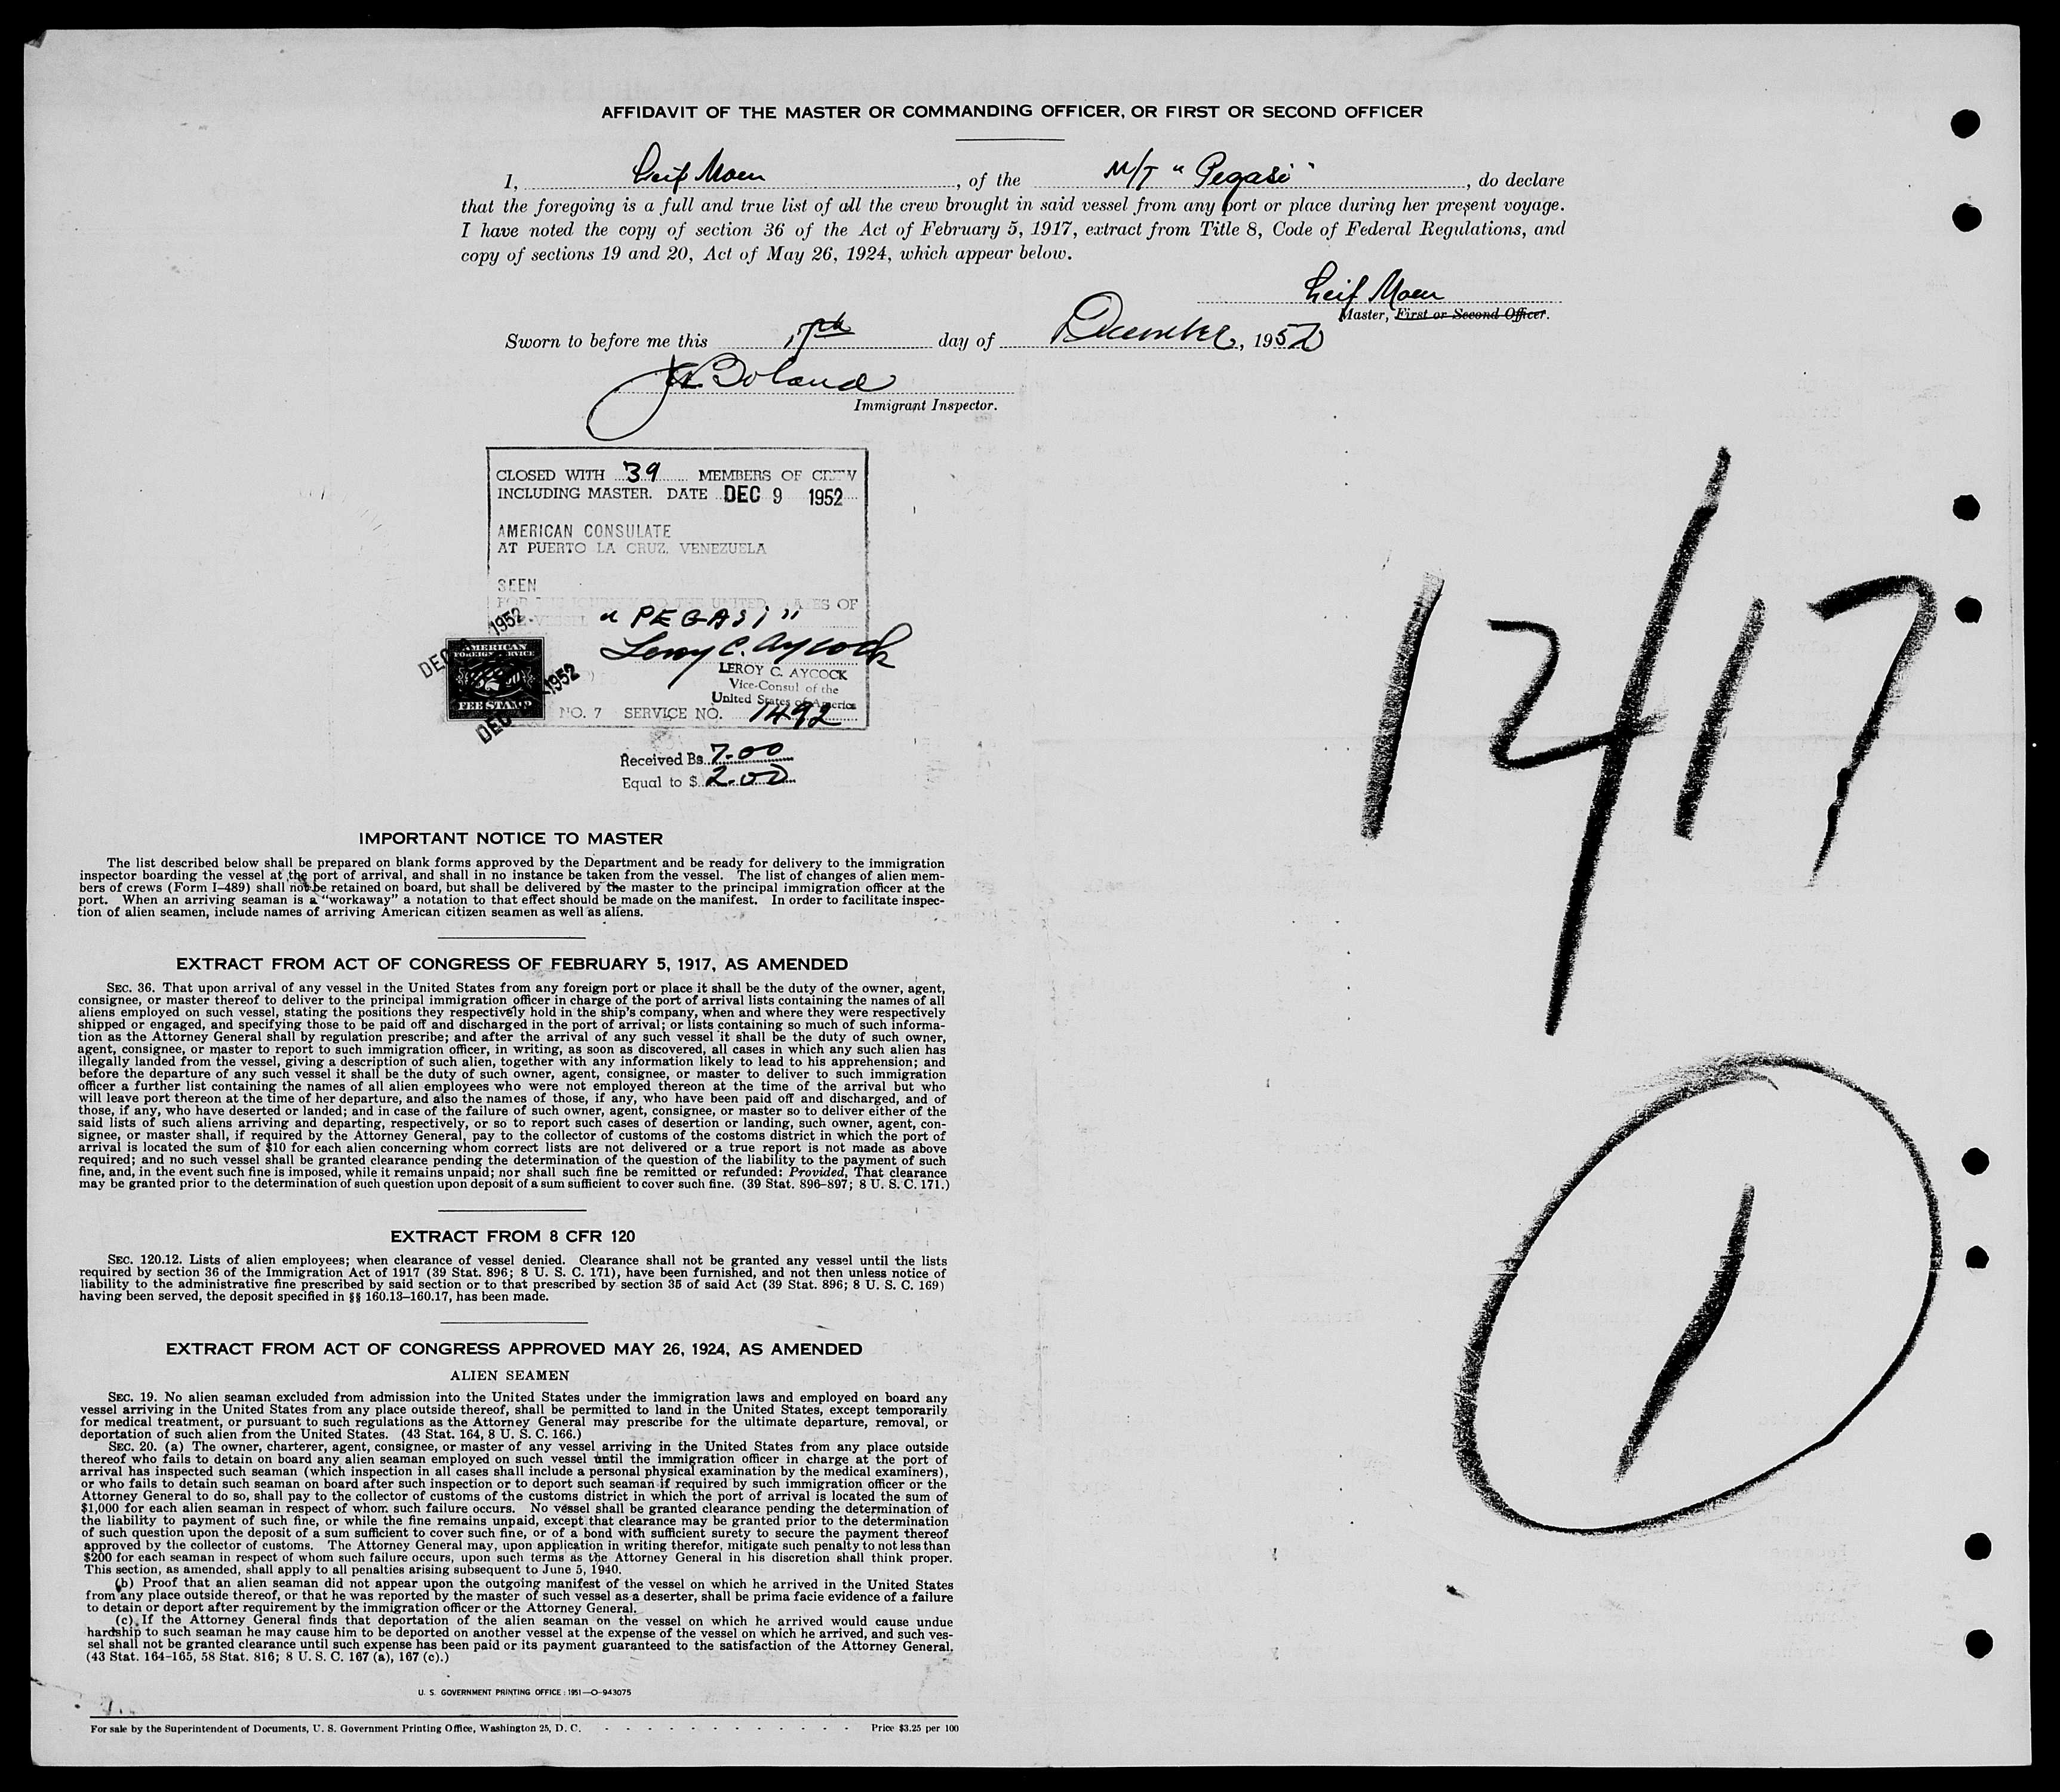 AFFIDAVIT OF THE MASTER OR COMMANDING OFFICER, OR FIRST OR SECOND OFFICER
I, Leif Moen, of the M/T "Pegasi", do declare
that the foregoing is a full and true list of all the crew brought in said vessel from any port or place during her present voyage.
I have noted the copy of section 36 of the Act of February 5, 1917, extract from Title 8, Code of Federal Regulations, and
copy of sections 19 and 20, Act of May 26, 1924, which appear below.
Leif Moen
Master, First or Second Officer.
Sworn to before me this 17th day of December, 1952
Boland
Immigrant Inspector.
CLOSED WITH 39 MEMBERS OF CREW
INCLUDING MASTER. DATE DEC 9 1952
AMERICAN CONSULATE
AT PUERTO LA CRUZ, VENEZUELA
SEEN
FOR THE JOURNEY TO THE UNITED STATES OF
VESSEL "PEGASI"
Leroy C. Aycock
LEROY C. AYCOCK
Vice-Consul of the
United States of America
NO. 7 SERVICE NO. 1492
DEC 1952
AMERICAN
FOREIGN SERVICE
FEE STAMP
DEC 1952
Received Bs. 7.00
Equal to $ 2.00
12/17
1
IMPORTANT NOTICE TO MASTER
The list described below shall be prepared on blank forms approved by the Department and be ready for delivery to the immigration
inspector boarding the vessel at the port of arrival, and shall in no instance be taken from the vessel. The list of changes of alien mem-
bers of crews (Form I–489) shall not be retained on board, but shall be delivered by the master to the principal immigration officer at the
port. When an arriving seaman is a "workaway" a notation to that effect should be made on the manifest. In order to facilitate inspec-
tion of alien seamen, include names of arriving American citizen seamen as well as aliens.
EXTRACT FROM ACT OF CONGRESS OF FEBRUARY 5, 1917, AS AMENDED
SEC. 36. That upon arrival of any vessel in the United States from any foreign port or place it shall be the duty of the owner, agent,
consignee, or master thereof to deliver to the principal immigration officer in charge of the port of arrival lists containing the names of all
aliens employed on such vessel, stating the positions they respectively hold in the ship's company, when and where they were respectively
shipped or engaged, and specifying those to be paid off and discharged in the port of arrival; or lists containing so much of such informa-
tion as the Attorney General shall by regulation prescribe; and after the arrival of any such vessel it shall be the duty of such owner,
agent, consignee, or master to report to such immigration officer, in writing, as soon as discovered, all cases in which any such alien has
illegally landed from the vessel, giving a description of such alien, together with any information likely to lead to his apprehension; and
before the departure of any such vessel it shall be the duty of such owner, agent, consignee, or master to deliver to such immigration
officer a further list containing the names of all alien employees who were not employed thereon at the time of the arrival but who
will leave port thereon at the time of her departure, and also the names of those, if any, who have been paid off and discharged, and of
those, if any, who have deserted or landed; and in case of the failure of such owner, agent, consignee, or master so to deliver either of the
said lists of such aliens arriving and departing, respectively, or so to report such cases of desertion or landing, such owner, agent, con-
signee, or master shall, if required by the Attorney General, pay to the collector of customs of the costoms district in which the port of
arrival is located the sum of $10 for each alien concerning whom correct lists are not delivered or a true report is not made as above
required; and no such vessel shall be granted clearance pending the determination of the question of the liability to the payment of such
fine, and, in the event such fine is imposed, while it remains unpaid; nor shall such fine be remitted or refunded: Provided, That clearance
may be granted prior to the determination of such question upon deposit of a sum sufficient to cover such fine. (39 Stat. 896–897; 8 U. S. C. 171.)
EXTRACT FROM 8 CFR 120
SEC. 120.12. Lists of alien employees; when clearance of vessel denied. Clearance shall not be granted any vessel until the lists
required by section 36 of the Immigration Act of 1917 (39 Stat. 896; 8 U. S. C. 171), have been furnished, and not then unless notice of
liability to the administrative fine prescribed by said section or to that prescribed by section 35 of said Act (39 Stat. 896; 8 U. S. C. 169)
having been served, the deposit specified in §§ 160.13–160.17, has been made.
EXTRACT FROM ACT OF CONGRESS APPROVED MAY 26, 1924, AS AMENDED
ALIEN SEAMEN
SEC. 19. No alien seaman excluded from admission into the United States under the immigration laws and employed on board any
vessel arriving in the United States from any place outside thereof, shall be permitted to land in the United States, except temporarily
for medical treatment, or pursuant to such regulations as the Attorney General may prescribe for the ultimate departure, removal, or
deportation of such alien from the United States. (43 Stat. 164, 8 U. S. C. 166.)
SEC. 20. (a) The owner, charterer, agent, consignee, or master of any vessel arriving in the United States from any place outside
thereof who fails to detain on board any alien seaman employed on such vessel until the immigration officer in charge at the port of
arrival has inspected such seaman (which inspection in all cases shall include a personal physical examination by the medical examiners),
or who fails to detain such seaman on board after such inspection or to deport such seaman if required by such immigration officer or the
Attorney General to do so, shall pay to the collector of customs of the customs district in which the port of arrival is located the sum of
$1,000 for each alien seaman in respect of whom such failure occurs. No vessel shall be granted clearance pending the determination of
the liability to payment of such fine, or while the fine remains unpaid, except that clearance may be granted prior to the determination
of such question upon the deposit of a sum sufficient to cover such fine, or of a bond with sufficient surety to secure the payment thereof
approved by the collector of customs. The Attorney General may, upon application in writing therefor, mitigate such penalty to not less than
$200 for each seaman in respect of whom such failure occurs, upon such terms as the Attorney General in his discretion shall think proper.
This section, as amended, shall apply to all penalties arising subsequent to June 5, 1940.
(b) Proof that an alien seaman did not appear upon the outgoing manifest of the vessel on which he arrived in the United States
from any place outside thereof, or that he was reported by the master of such vessel as a deserter, shall be prima facie evidence of a failure
to detain or deport after requirement by the immigration officer or the Attorney General.
(c) If the Attorney General finds that deportation of the alien seaman on the vessel on which he arrived would cause undue
hardship to such seaman he may cause him to be deported on another vessel at the expense of the vessel on which he arrived, and such ves-
sel shall not be granted clearance until such expense has been paid or its payment guaranteed to the satisfaction of the Attorney General.
(43 Stat. 164–165, 58 Stat. 816; 8 U. S. C. 167 (a), 167 (c).)
U. S. GOVERNMENT PRINTING OFFICE : 1951—O–943075
For sale by the Superintendent of Documents, U. S. Government Printing Office, Washington 25, D. C. - - - - - - - - - - - Price $3.25 per 100